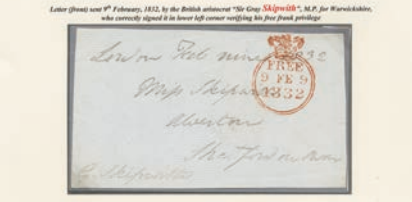 Letter (front) sent 9th February, 1832, by the British aristocrat "Sir Gray Skipwith", M.P. for Warwickshire,
who correctly signed it in lower left corner verifying his free frank privilege
London Feb nine 1832
FREE
9 FE 9
1832
Miss Skipwith
Alverton
Stratford on Avon
G. Skipwith